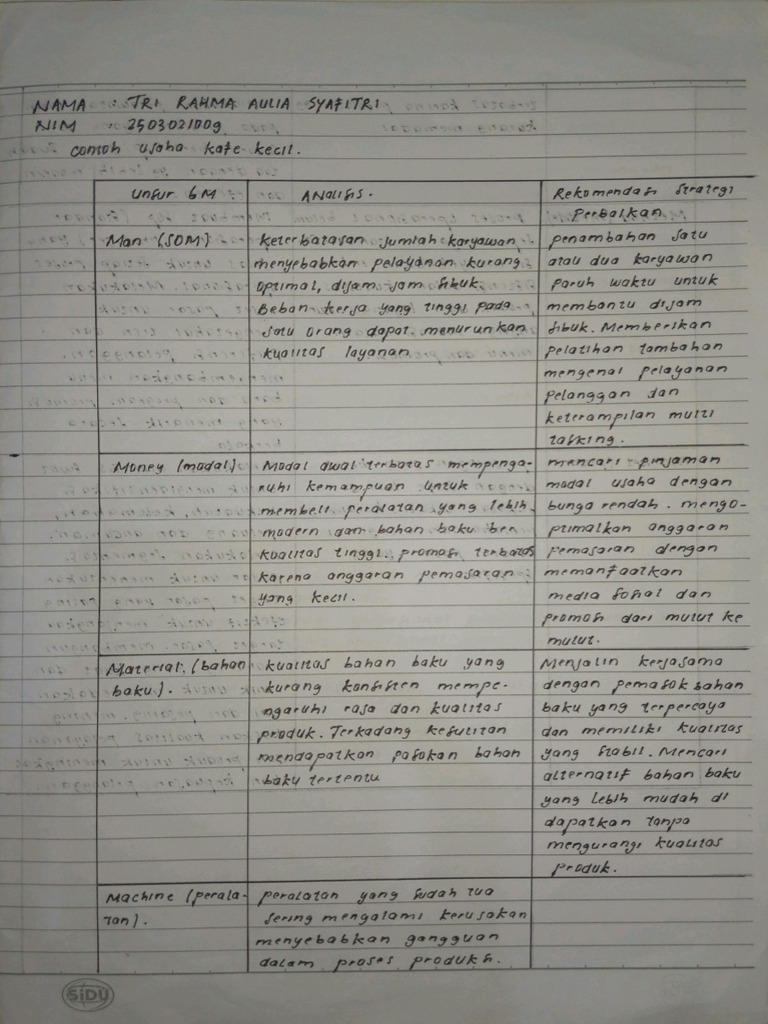 NAMA : TRI RAHMA AULIA SYAFITRI
NIM : 250302100g
comoh usaha kafe kecil.
Unsur 6M
ANALISIS.
Rekomendasi Strategi
Perbaikan
Man (SDM)
keterbatasan jumlah karyawan
menyebabkan pelayanan kurang
optimal, dijam jam sibuk.
Beban kerja yang tinggi pada
satu orang dapat menurunkan
kualitas layanan
penambahan satu
atau dua karyawan
paruh waktu untuk
membantu dijam
sibuk. Memberikan
pelatihan tambahan
mengenai pelayanan
pelanggan dan
keterampilan multi
tasking.
Money (modal)
Modal awal terbatas mempenga-
ruhi kemampuan untuk
membeli peralatan yang lebih
modern dan bahan baku ber
kualitas tinggi. promosi terbatas
karena anggaran pemasaran
yang kecil.
mencari pinjaman
modal usaha dengan
bunga rendah. mengo-
ptimalkan anggaran
pemasaran dengan
memanfaatkan
media sosial dan
promosi dari mulut ke
mulut.
Material (bahan
baku).
kualitas bahan baku yang
kurang konsisten mempe-
ngaruhi rasa dan kualitas
produk. Terkadang kesulitan
mendapatkan pasokan bahan
baku tertentu
Menjalin kerjasama
dengan pemasok bahan
baku yang terpercaya
dan memiliki kualitas
yang stabil. Mencari
alternatif bahan baku
yang lebih mudah di
dapatkan tanpa
mengurangi kualitas
produk.
Machine (perala-
tan).
peralatan yang sudah tua
sering mengalami kerusakan
menyebabkan gangguan
dalam proses produksi.
SiDU